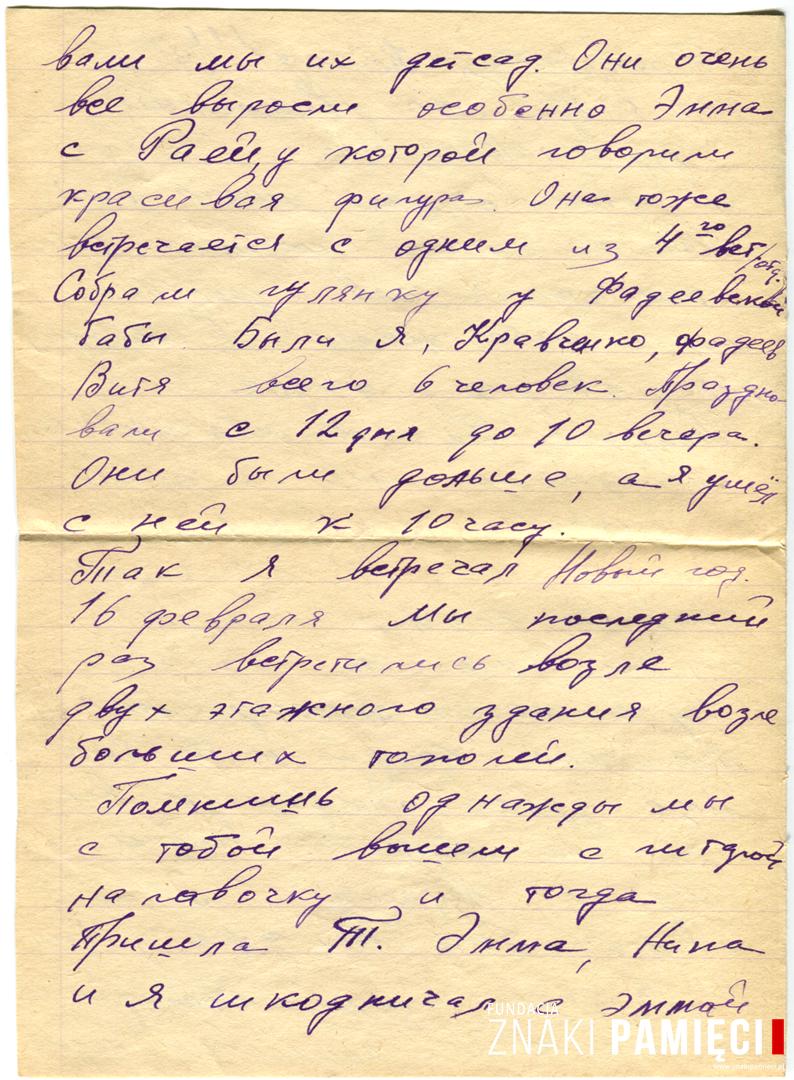 вали мы их детсад. Они очень
все выросли особенно Эмма
с Раей, у которой говорили
красивая фигура. Она тоже
встречается с одним из 4го вет/отд.
Собрали гулянку у Фадеевской
бабы. Были я, Кравченко, Фадеев
Витя всего 6 человек. Праздно-
вали с 12 дня до 10 вечера.
Они были дольше, а я ушёл
с ней к 10 часу.
Так я встречал Новый год.
16 февраля мы последний
раз встретились возле
двух этажного здания возле
больших тополей.
Помнишь однажды мы
с тобой вышли с гитарой
на лавочку и тогда
Пришла Т. Эмма,
и я шкодничал с Эммой
FUNDACJA
ZNAKI PAMIĘCI
www.znakipamieci.pl